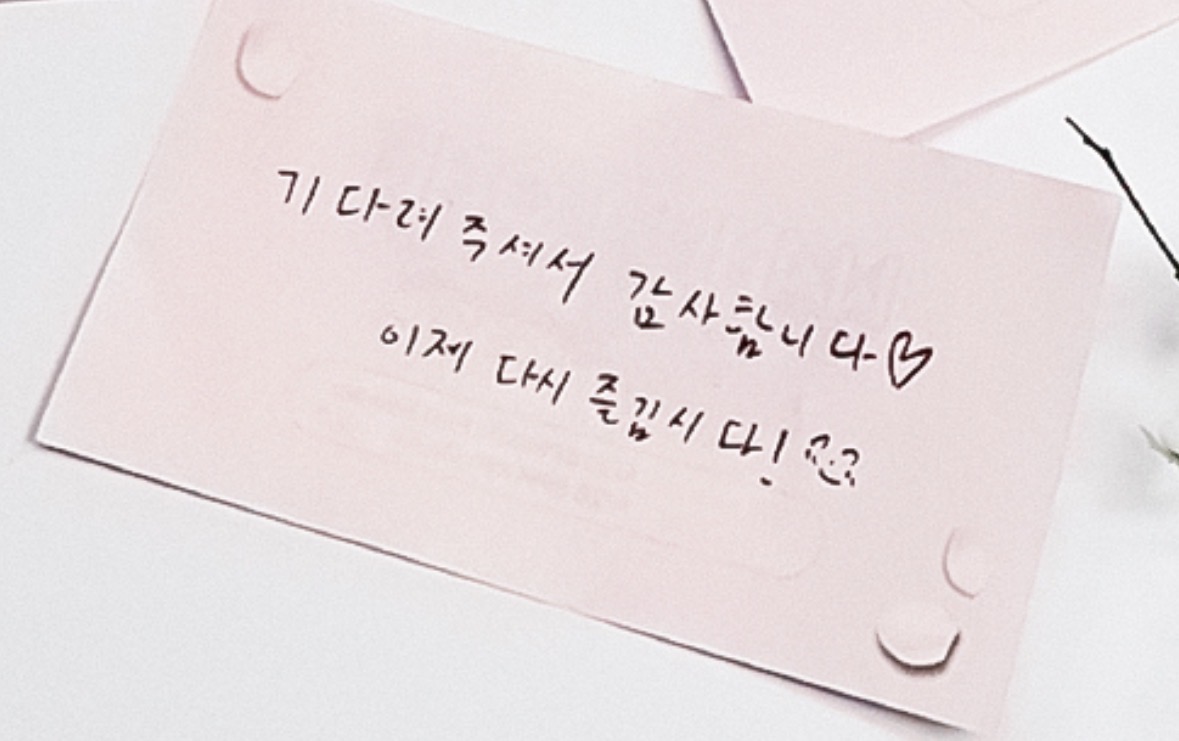 기다려주셔서 감사합니다♡
이제 다시 즐깁시다!